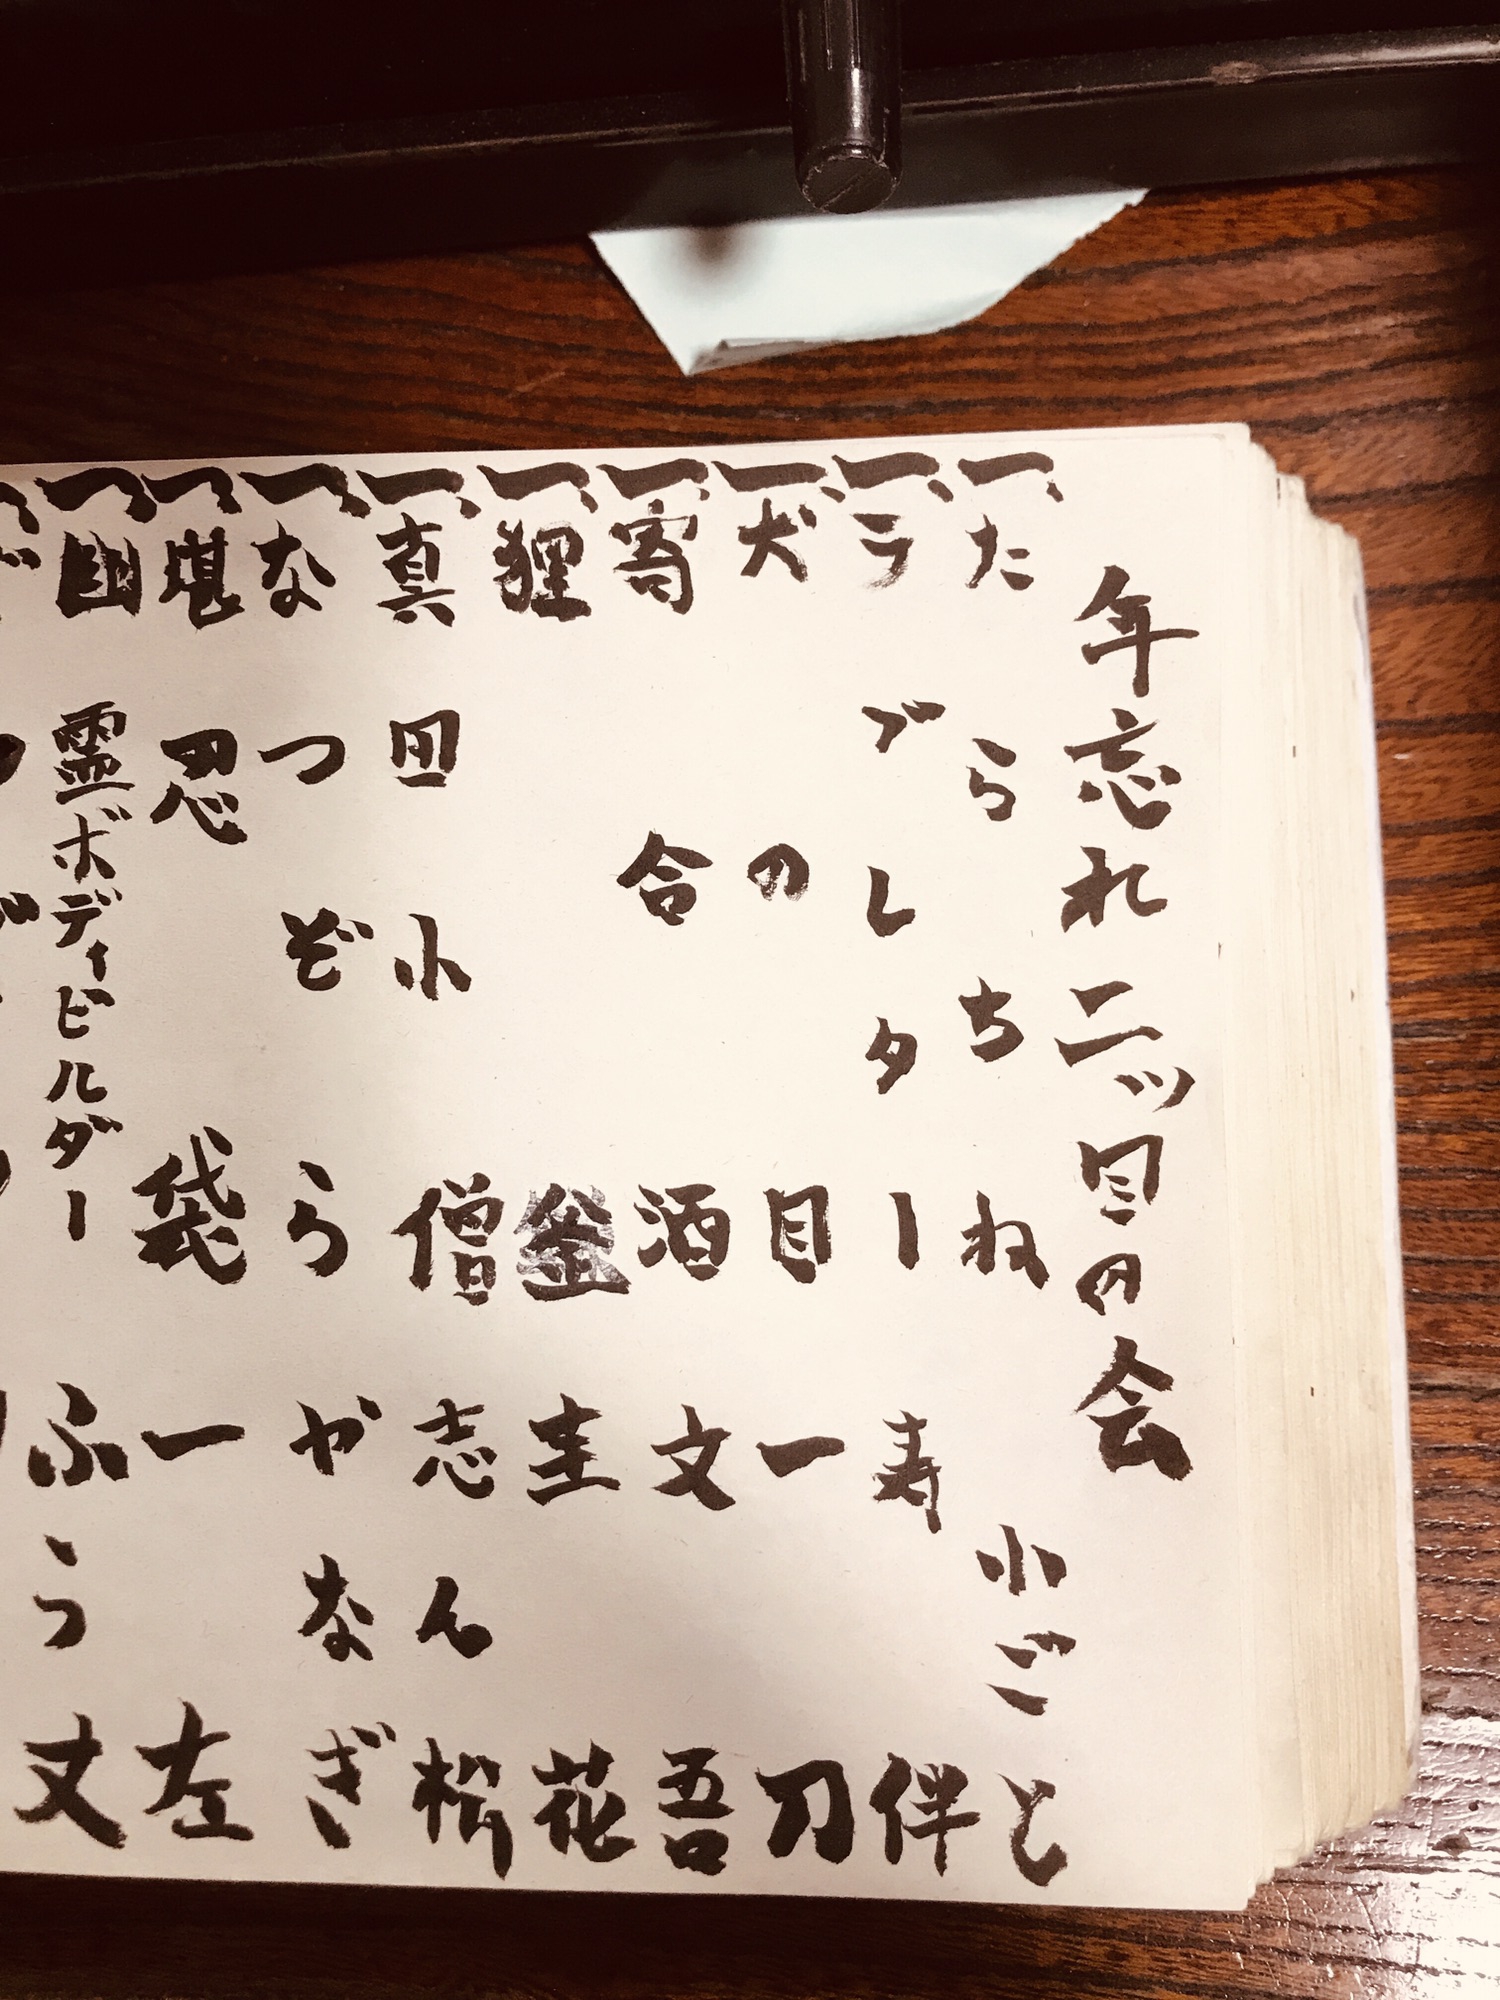 年忘れ二ッ目の会
一、たらちね 小ごと
一、ラブレター 寿伴
一、犬の目 一刀
一、寄合酒 文吾
一、狸釜 圭花
一、真田小僧 志ん松
一、なつぞら やなぎ
一、堪忍袋 一左
一、幽霊ボディビルダー ふう丈